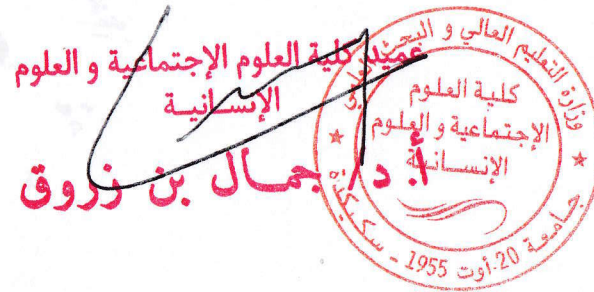 عميد كلية العلوم الإجتماعية و العلوم
الإنسـانيـة
أ. د/ جمـال بن زروق
وزارة التعليم العالي و البحث العلمي
كلية العلوم
الإجتماعية و العلوم
الإنســانـيـة
جـامـعـة 20 أوت 1955 ـ سـكـيـكـدة